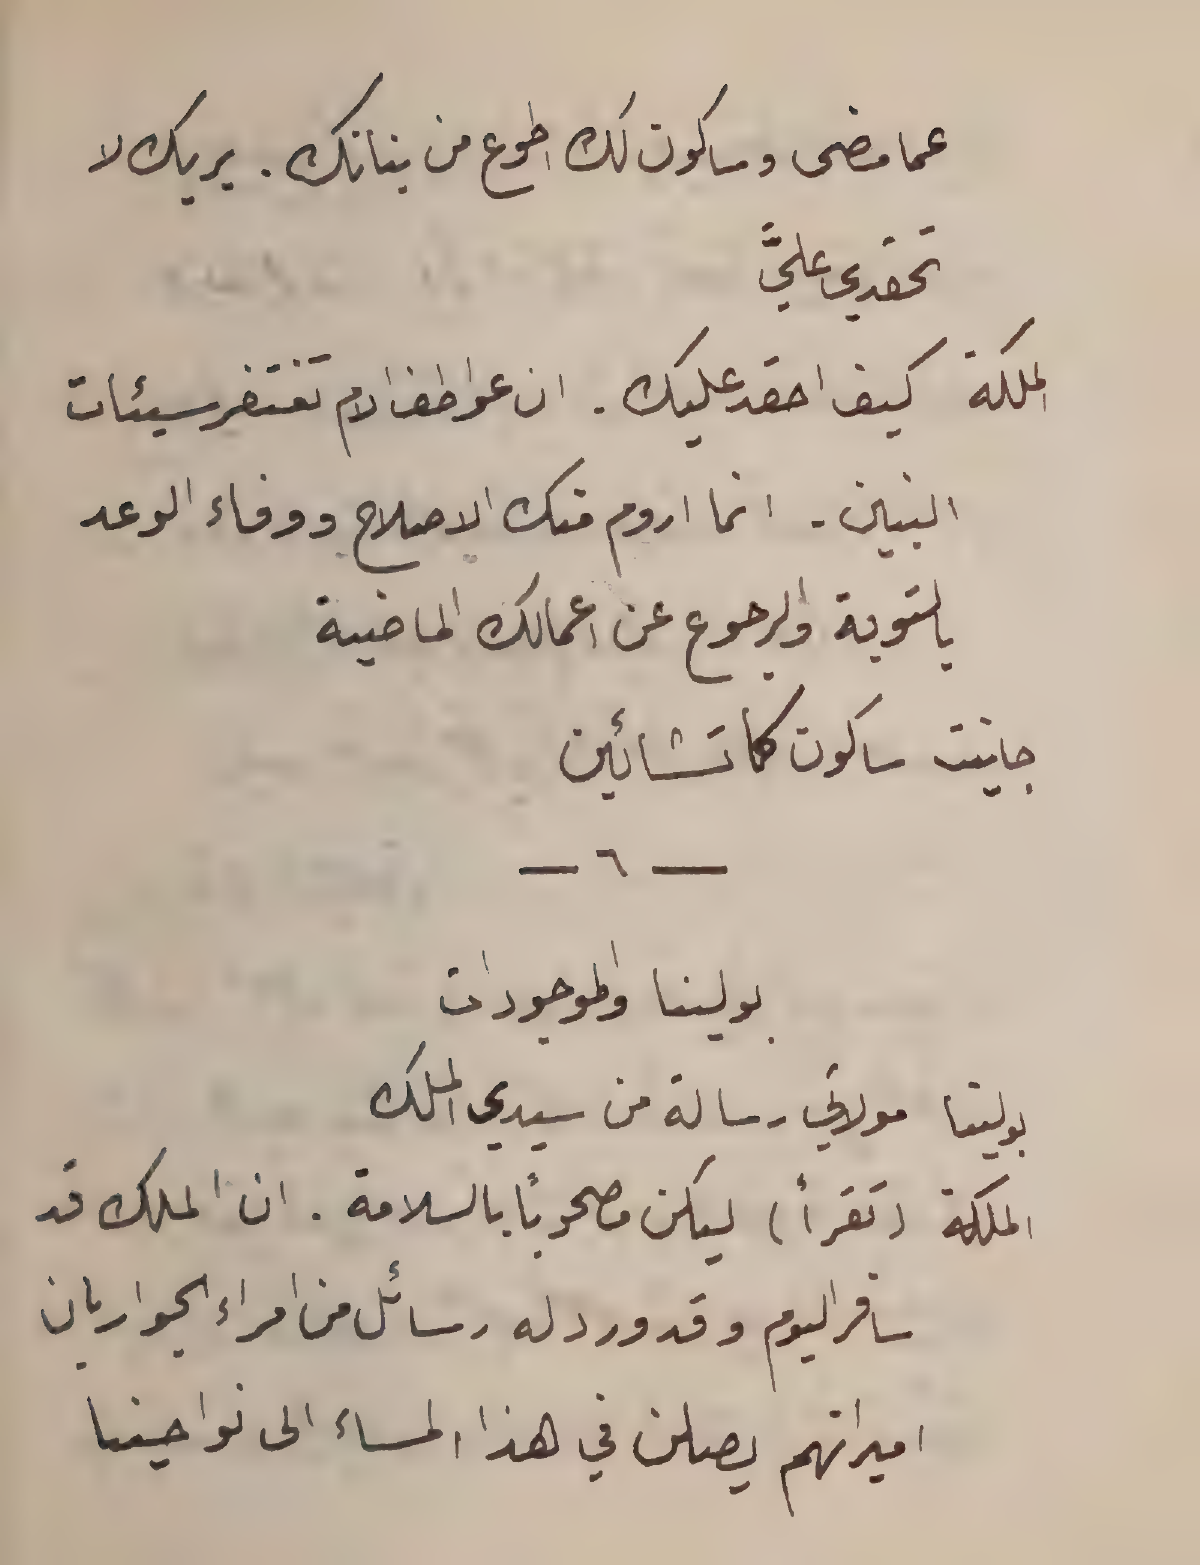 عما مضى وساكون لك اطوع من بناتك . بربك لا
تحقدي عليَّ
الملكة كيف احقد عليك . ان عواطف الام تغتفر سيئات
البنين . انما اروم منك الاصلاح ووفاء الوعد
بالتوبة والرجوع عن اعمالك الماضية
جانيت ساكون كما تشائين
— ٦ —
بولينا والموجودات
بولينا مولاتي رسالة من سيدي الملك
الملكة (تقرأ) ليكن مصحوبًا بالسلامة . ان الملك قد
سافر اليوم وقد ورد له رسائل من امراء الجوار بان
اميراتهم يصلن في هذا المساء الى نواحينا